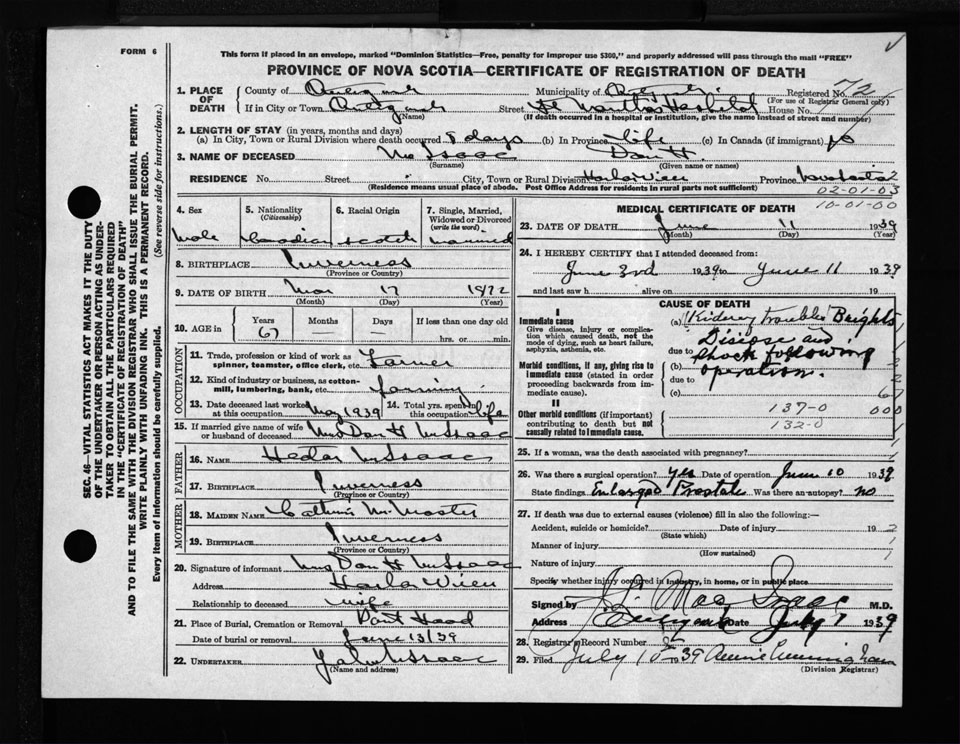 FORM 6
This form if placed in an envelope, marked "Dominion Statistics—Free, penalty for improper use $300," and properly addressed will pass through the mail "FREE"
PROVINCE OF NOVA SCOTIA—CERTIFICATE OF REGISTRATION OF DEATH
SEC. 46—VITAL STATISTICS ACT MAKES IT THE DUTY
OF THE UNDERTAKER OR PERSON ACTING AS UNDER-
TAKER TO OBTAIN ALL THE PARTICULARS REQUIRED
IN THE "CERTIFICATE OF REGISTRATION OF DEATH"
AND TO FILE THE SAME WITH THE DIVISION REGISTRAR WHO SHALL ISSUE THE BURIAL PERMIT.
WRITE PLAINLY WITH UNFADING INK. THIS IS A PERMANENT RECORD.
Every item of Information should be carefully supplied. (See reverse side for instructions.)
1. PLACE OF DEATH
County of Antigonish Municipality of Registered No. 72
(For use of Registrar General only)
If in City or Town Antigonish Street St Martha's Hospital House No.
(Name) (If death occurred in a hospital or institution, give the name instead of street and number)
2. LENGTH OF STAY (in years, months and days)
(a) In City, Town or Rural Division where death occurred 8 days (b) In Province life (c) In Canada (if immigrant)
3. NAME OF DECEASED McIsaac Dan H.
(Surname) (Given name or names)
RESIDENCE No. Street City, Town or Rural Division Harbor View Province Nova Scotia 2
(Residence means usual place of abode. Post Office Address for residents in rural parts not sufficient)
02-01-03
10-01-00
4. Sex 5. Nationality (Citizenship) 6. Racial Origin 7. Single, Married, Widowed or Divorced (write the word)
Male Canadian Scotch Married
8. BIRTHPLACE Inverness
(Province or Country)
9. DATE OF BIRTH Mar 17 1872
(Month) (Day) (Year)
10. AGE in Years Months Days If less than one day old
67 — — hrs. or min.
OCCUPATION
11. Trade, profession or kind of work as spinner, teamster, office clerk, etc. Farmer
12. Kind of industry or business, as cotton-mill, lumbering, bank, etc. farming
13. Date deceased last worked at this occupation May 1939 14. Total yrs. spent in this occupation life
15. If married give name of wife or husband of deceased Mrs Dan H McIsaac
FATHER
16. Name Hector McIsaac
17. Birthplace Inverness
(Province or Country)
MOTHER
18. MAIDEN NAME McMaster
19. BIRTHPLACE Inverness
(Province or Country)
20. Signature of informant Mrs Dan H McIsaac
Address Harbor View
Relationship to deceased wife
21. Place of Burial, Cremation or Removal Port Hood
Date of burial or removal June 13/39
22. UNDERTAKER John McIsaac
(Name and address)
MEDICAL CERTIFICATE OF DEATH
23. DATE OF DEATH June 11 1939
(Month) (Day) (Year)
24. I HEREBY CERTIFY that I attended deceased from:
June 3rd 1939 to June 11 1939
and last saw h alive on 19
CAUSE OF DEATH
I
Immediate cause
Give disease, injury or complication which caused death, not the mode of dying, such as heart failure, asphyxia, asthenia, etc.
Morbid conditions, if any, giving rise to immediate cause (stated in order proceeding backwards from immediate cause).
II
Other morbid conditions (if important) contributing to death but not causally related to immediate cause.
(a) Kidney trouble Brights
Disease and
due to shock following
(b) operation.
due to
(c)
67
137-0 000
132-0
25. If a woman, was the death associated with pregnancy?
26. Was there a surgical operation? yes Date of operation June 10 1939
State findings Enlarged Prostate Was there an autopsy? no
27. If death was due to external causes (violence) fill in also the following:—
Accident, suicide or homicide? Date of injury 19
(State which)
Manner of injury
(How sustained)
Nature of injury
Specify whether injury occurred in industry, in home, or in public place
Signed by MacIsaac M.D.
Address Antigonish Date July 7 1939
28. Registrar's Record Number
29. Filed July 10 39 Annie Cunningham
(Division Registrar)